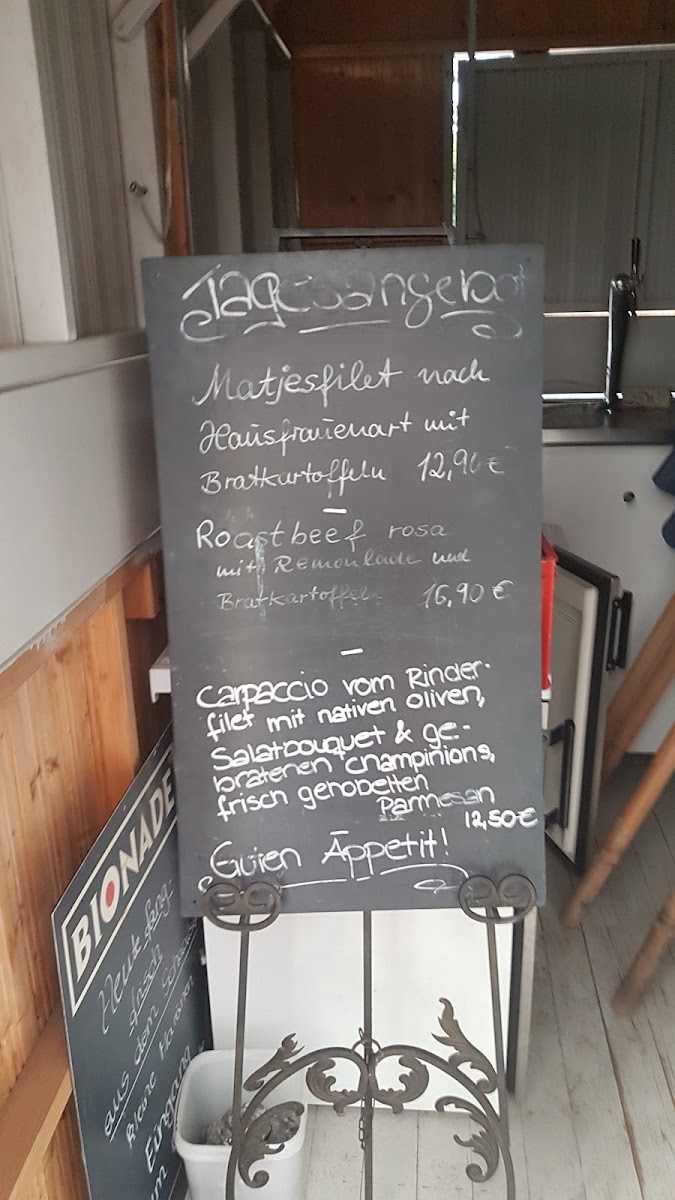 Tagesangebot
Matjesfilet nach
Hausfrauenart mit
Bratkartoffeln 12,90 €
–
Roastbeef rosa
mit Remoulade und
Bratkartoffeln 16,90 €
–
Carpaccio vom Rinder-
filet mit nativen Oliven,
Salatbouquet & ge-
bratenen Champinions,
frisch genobelten
Parmesan
12,50€
Guten Appetit!
BIONADE
Heute fang-
frisch
aus dem
Eingang